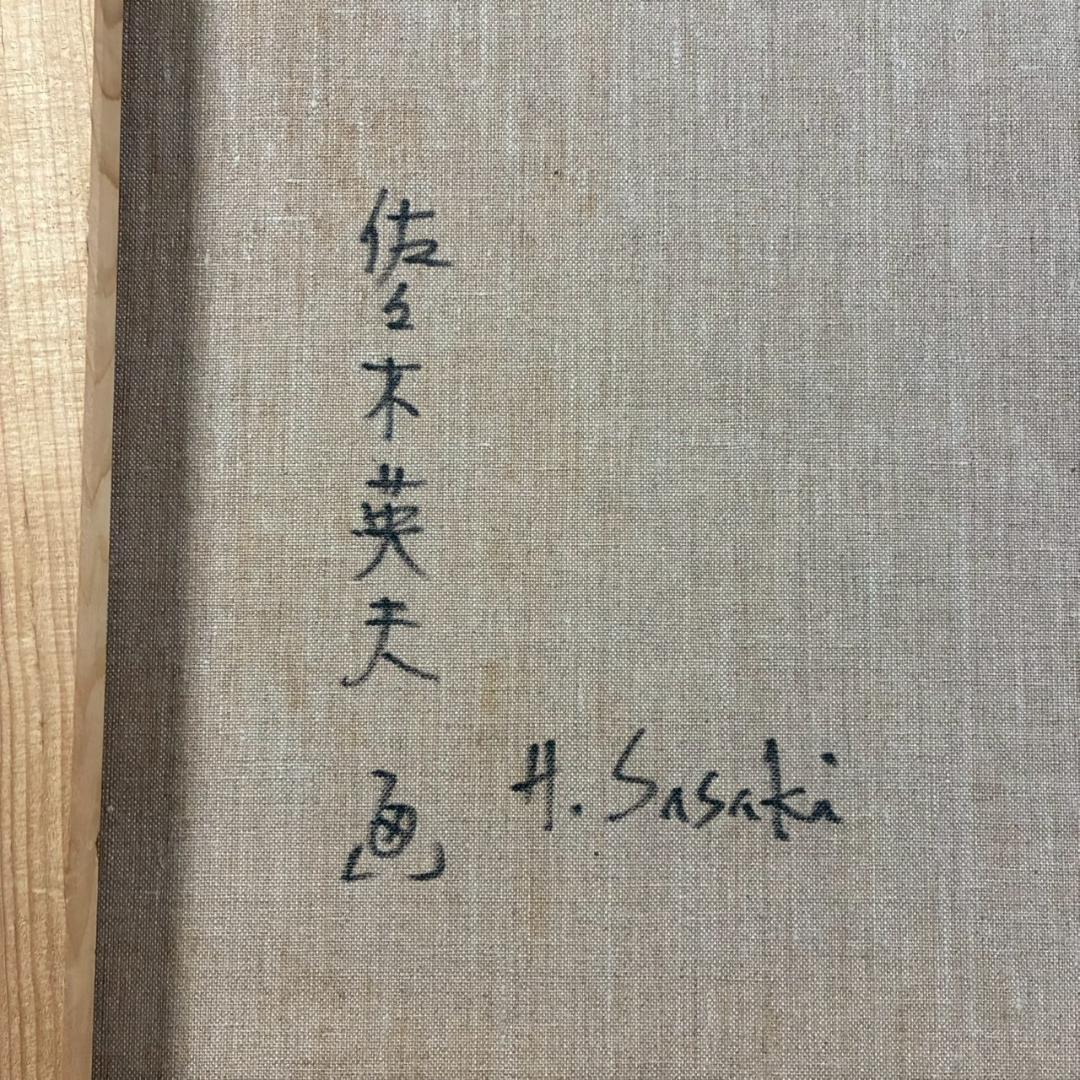 佐々木英夫 画
H. Sasaki